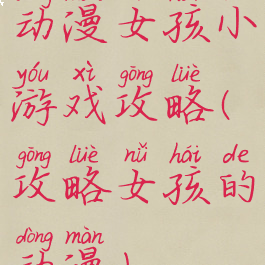 动漫女孩小
yóu xì gōng lüè
游戏攻略(
gōng lüè nǚ hái de
攻略女孩的
dòng màn
动漫)